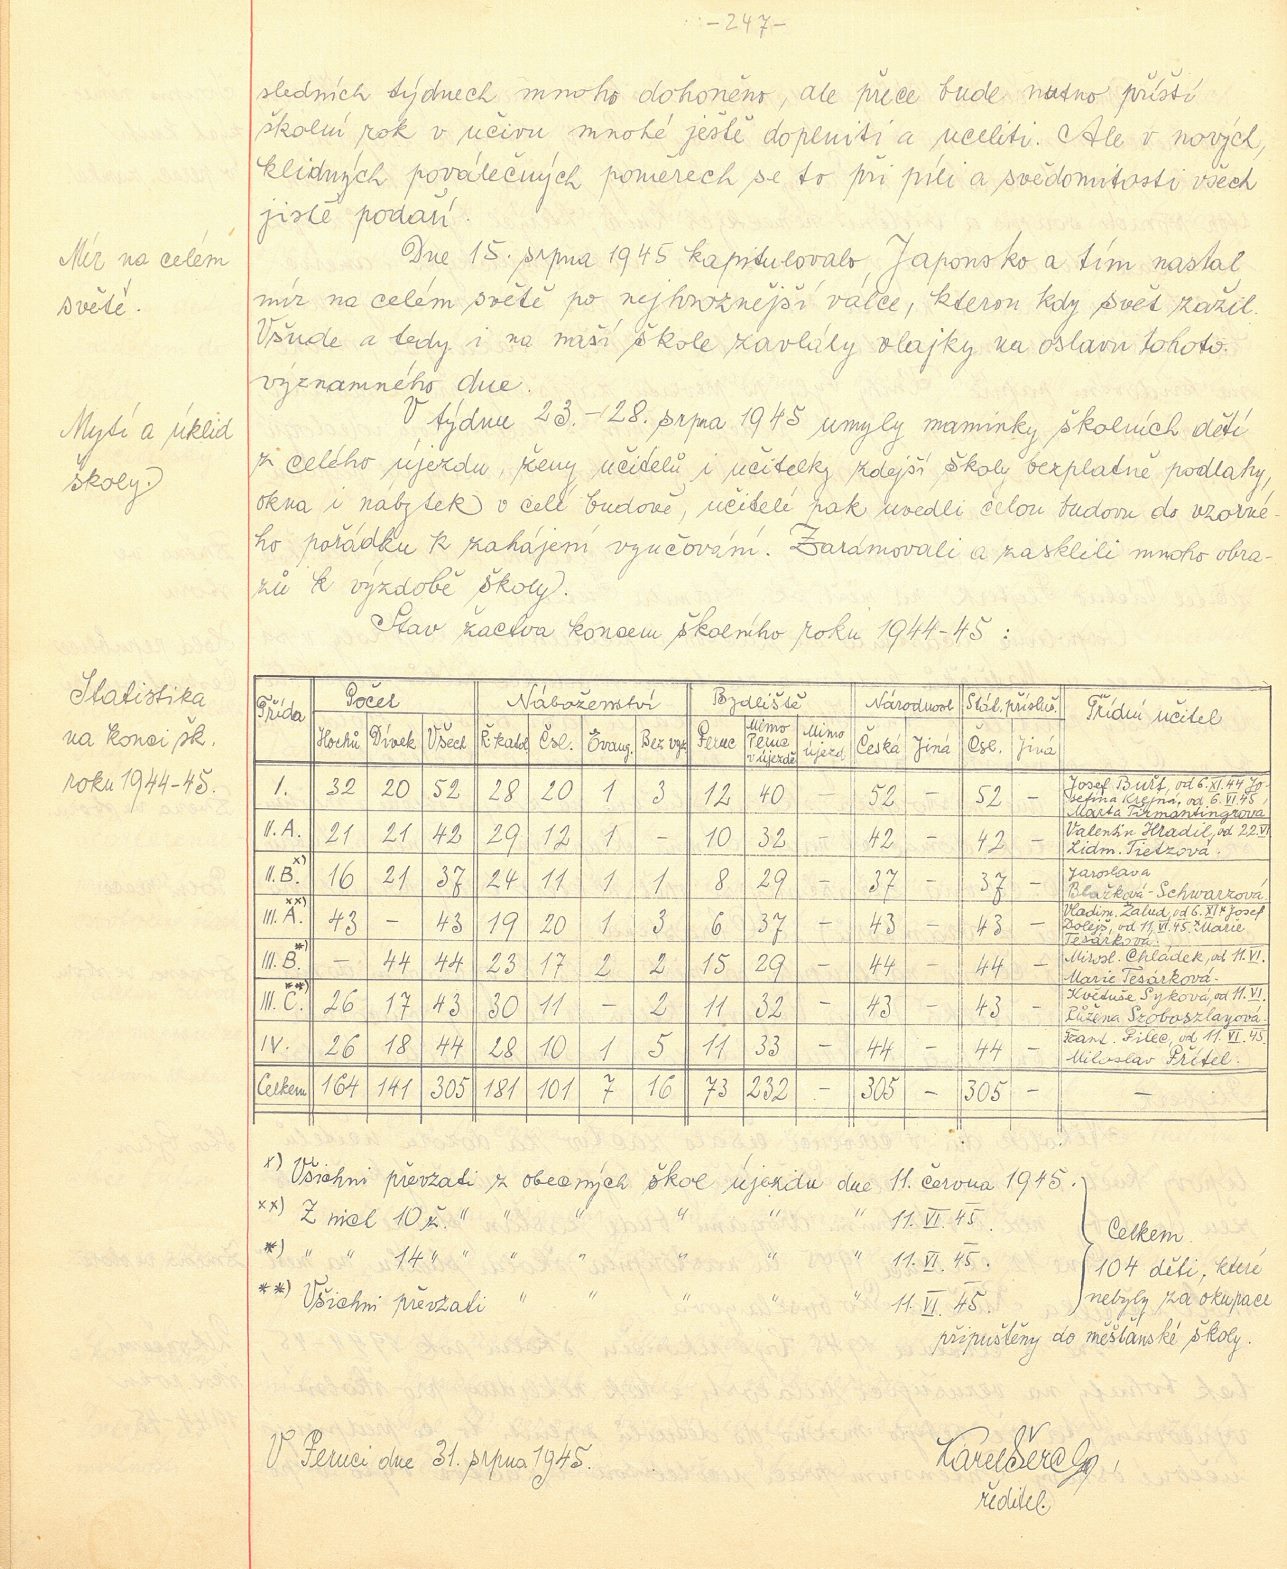 -247-
sledních týdnech mnoho dohoněno, ale přece bude nutno příští
školní rok v učivu mnohé ještě doplniti a uceliti. Ale v nových,
klidných poválečných poměrech se to při píli a svědomitosti všech
jistě podaří.
Mír na celém
světě.
Dne 15. srpna 1945 kapitulovalo Japonsko a tím nastal
mír na celém světě po nejhroznější válce, kterou kdy svět zažil.
Všude a tedy i na naší škole zavlály vlajky na oslavu tohoto
významného dne.
Mytí a úklid
školy.
V týdnu 23.-28. srpna 1945 umyly maminky školních dětí
z celého újezdu, ženy učitelů i učitelky zdejší školy bezplatně podlahy,
okna i nábytek v celé budově, učitelé pak uvedli celou budovu do vzorné-
ho pořádku k zahájení vyučování. Zarámovali a zasklili mnoho obra-
zů k výzdobě školy.
Stav žactva koncem školního roku 1944-45:
Statistika
na konci šk.
roku 1944-45.
Třída Počet Náboženství Bydliště Národnost Stát. přísluš. Třídní učitel
Hochů Dívek Všech Ř.katol. Čsl. Evang. Bez vyz. Peruc Mimo Peruc v újezdě Mimo újezd Česká Jiná Čsl. Jiná
I. 32 20 52 28 20 1 3 12 40 - 52 - 52 - Josef Bušt, od 6.XI.44 Jo-
sefina Klejná, od 6.VI.45
Marta Firmantingrová
II.A. 21 21 42 29 12 1 - 10 32 - 42 - 42 - Valentin Hradil, od 22.VI
Lidm. Tietzová.
II.B. x) 16 21 37 24 11 1 1 8 29 - 37 - 37 - Jaroslava
Blažková-Schwarzová
III.A. xx) 43 - 43 19 20 1 3 6 37 - 43 - 43 - Vladim. Žalud, od 6.XI. Josef
Dolejš, od 11.VI.45 Marie
Tesárková.
III.B. *) - 44 44 23 17 2 2 15 29 - 44 - 44 - Mirosl. Chládek, od 11.VI.
Marie Tesárková.
III.C. **) 26 17 43 30 11 - 2 11 32 - 43 - 43 - Květuše Syková, od 11.VI.
Růžena Szoboszlayová.
IV. 26 18 44 28 10 1 5 11 33 - 44 - 44 - Frant. Pilec, od 11.VI.45
Miloslav Přítel.
Celkem 164 141 305 181 101 7 16 73 232 - 305 - 305 - -
x) Všichni převzati z obecných škol újezdu dne 11. června 1945.
xx) Z nich 10 ž. " " " " " " 11.VI.45.
*) " " 14 " " " " " " " 11.VI.45.
**) Všichni převzati " " " " " 11.VI.45.
Celkem
104 dětí, které
nebyly za okupace
připuštěny do měšťanské školy.
V Peruci dne 31. srpna 1945.
Karel Šercl
ředitel.